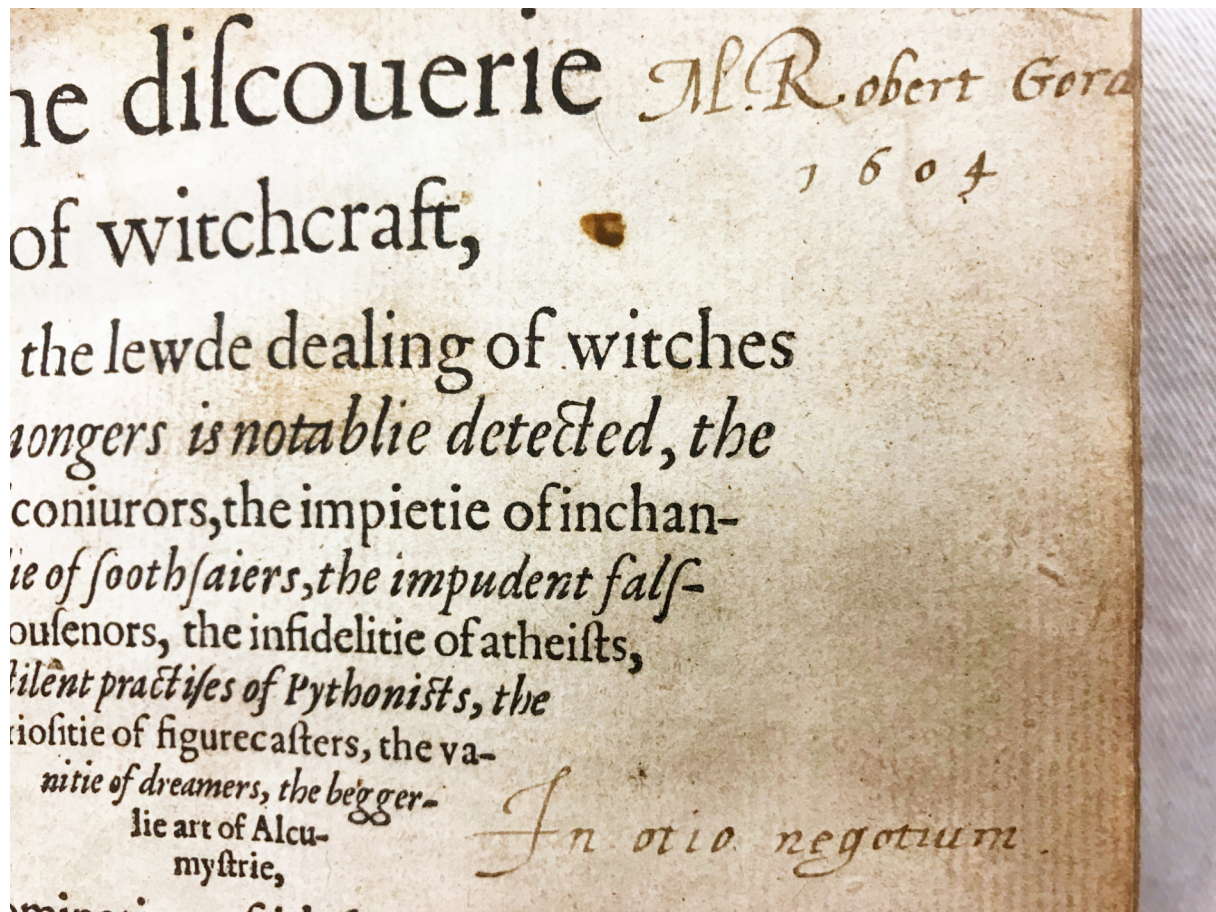 diſcouerie M. Robert Gord
1604
of witchcraft,
the lewde dealing of witches
mongers is notablie detected, the
coniurors, the impietie of inchan-
ie of ſoothſaiers, the impudent falſ-
ouſenors, the infidelitie of atheiſts,
tilent practiſes of Pythoniſts, the
rioſitie of figurecaſters, the va-
nitie of dreamers, the begger-
lie art of Alcu-
myſtrie,
In otio negotium.